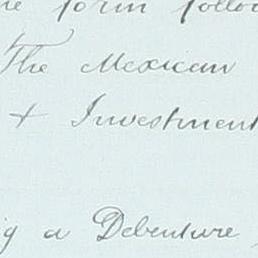 form follow
The Mexican
+ Investment
a Debenture